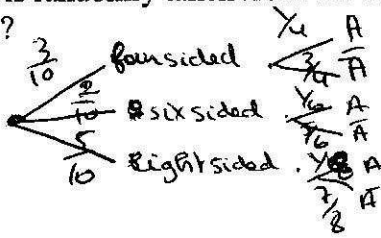 ?
3/10 foursided 1/4 A
3/4 A̅
2/10 sixsided 1/6 A
5/6 A̅
5/10 Eightsided 1/8 A
7/8 A̅